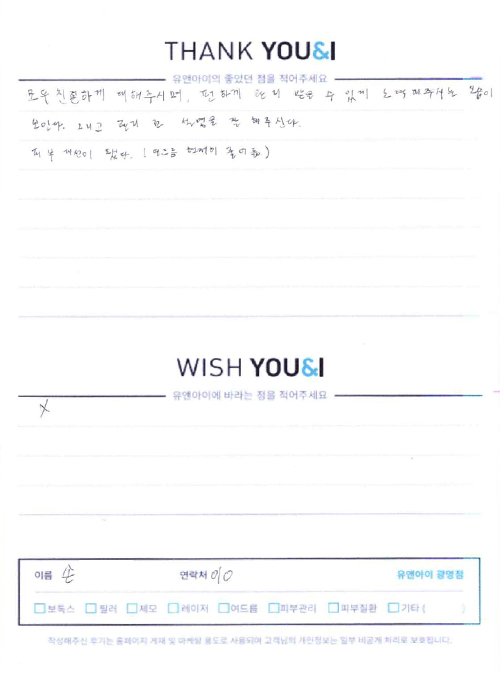 THANK YOU&I
유앤아이의 좋았던 점을 적어주세요
모두 친절하게 대해주시며, 편하게 관리 받을 수 있게 노력해주시는 모습이
보인다. 그리고 관리 한 설명을 잘 해주신다.
피부 개선이 됐다. (여드름 현저히 줄어듦)
WISH YOU&I
유앤아이에 바라는 점을 적어주세요
X
이름 손 연락처 010 유앤아이 광명점
보톡스 필러 제모 레이저 여드름 피부관리 피부질환 기타 ( )
작성해주신 후기는 홈페이지 게재 및 마케팅 용도로 사용되며 고객님의 개인정보는 일부 비공개 처리로 보호됩니다.